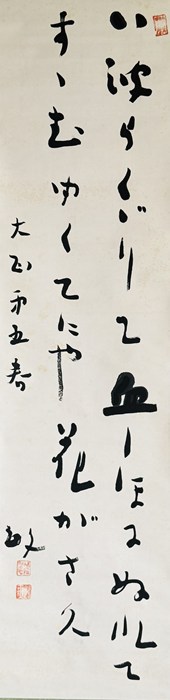 い波らくゞりて血しほにぬれて
すゝむゆくてにや花がさく
大正第五春